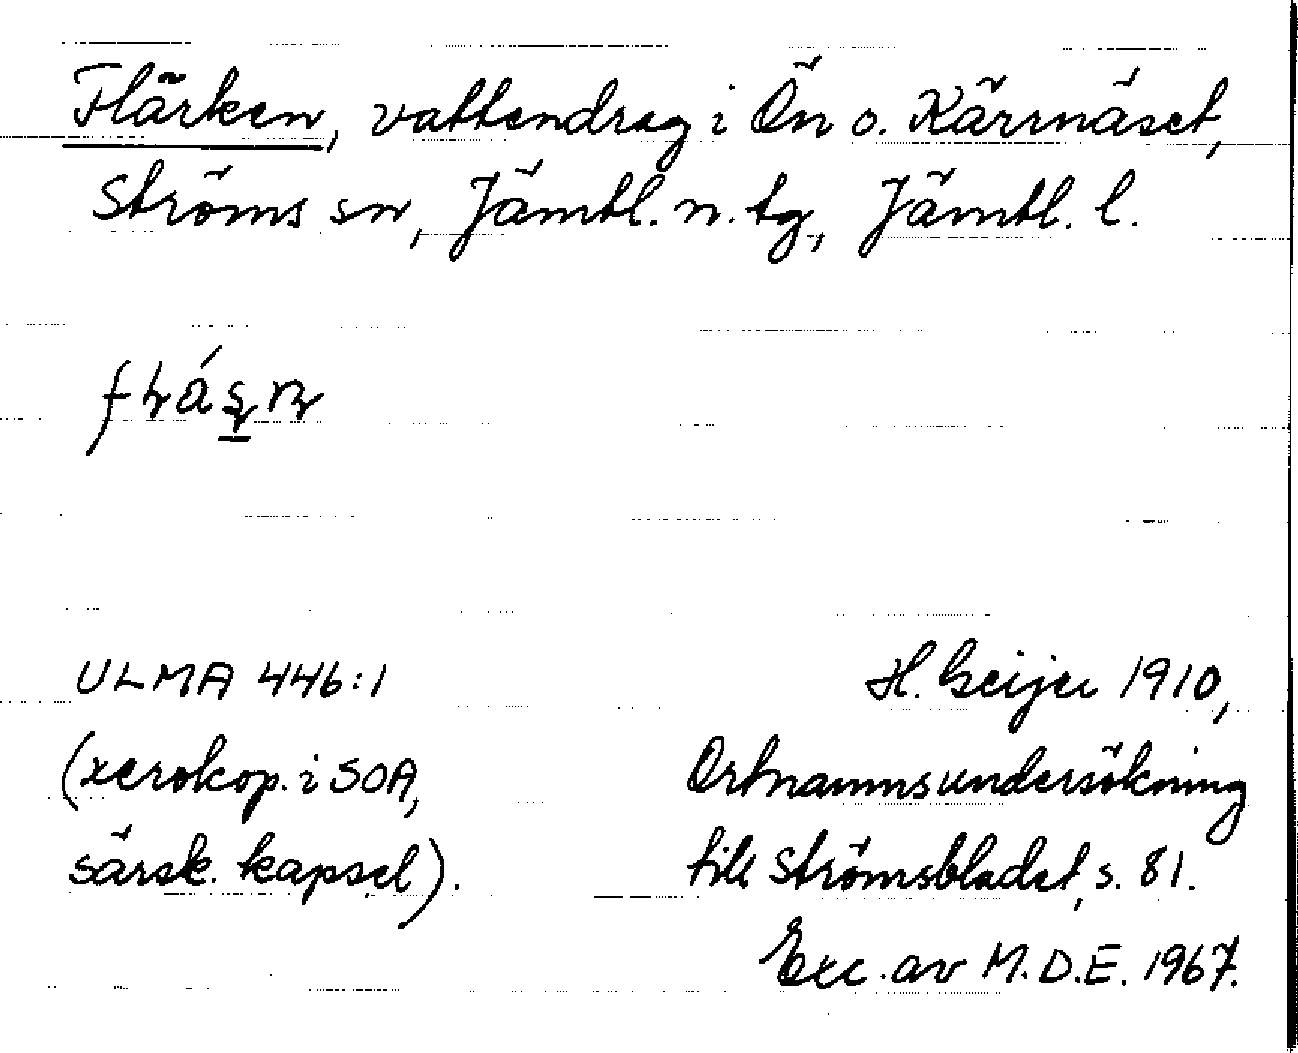 Flärken, vattendrag i Ön o. Kärrnäset,
Ströms sn, Jämtl. n. tg, Jämtl. l.
ULMA 446:1
H. Geijer 1910,
(xerokop. i SOA,
Ortnamnsundersökning
särsk. kapsel).
till Strömsbladet, s. 81.
Exc. av M.D.E. 1967.